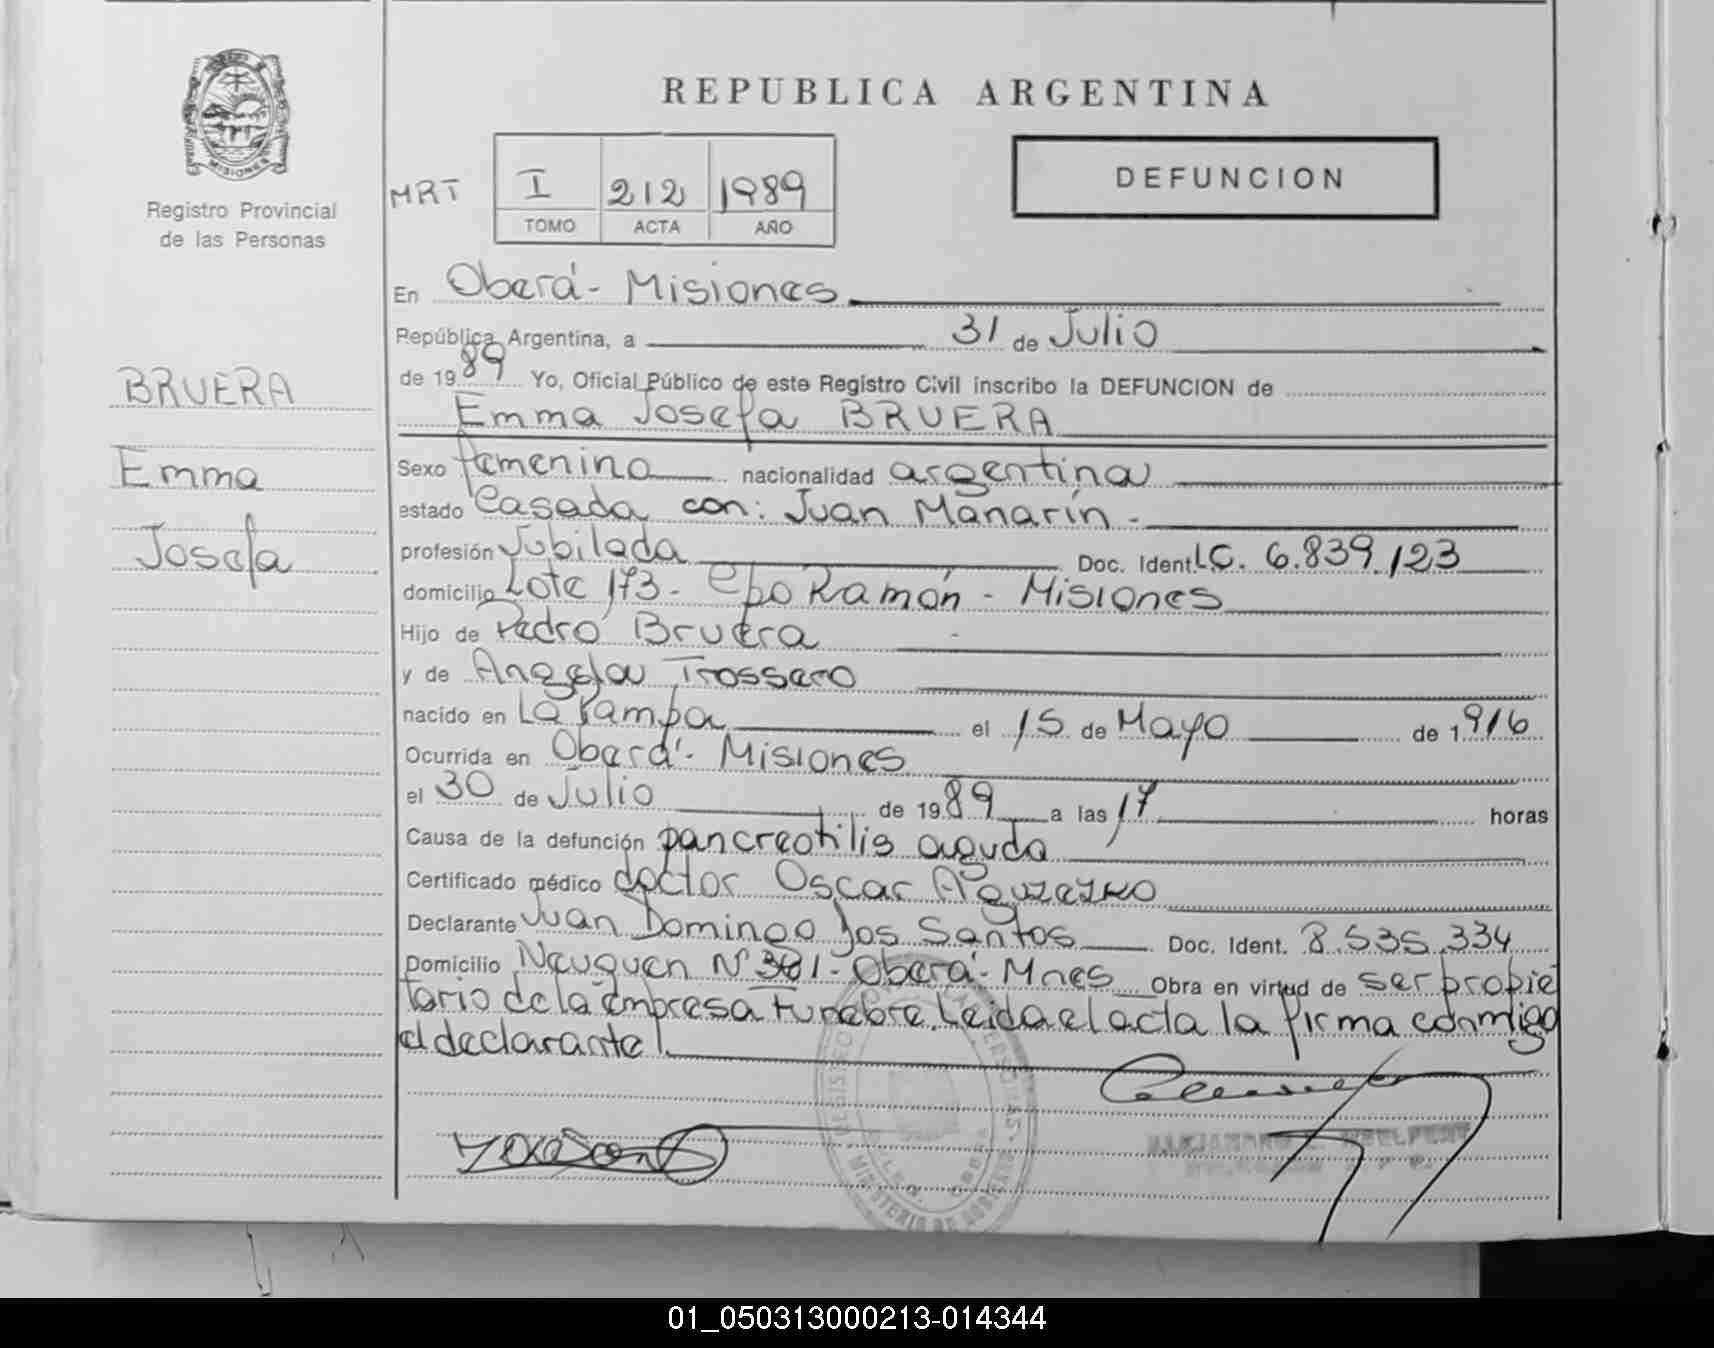 REPUBLICA ARGENTINA
MISIONES
Registro Provincial
de las Personas
MRT
I 212 1989
TOMO ACTA AÑO
DEFUNCION
BRUERA
Emma
Josefa
En Oberá - Misiones
República Argentina, a 31 de Julio
de 1989 Yo, Oficial Público de este Registro Civil inscribo la DEFUNCION de
Emma Josefa BRUERA
Sexo femenino nacionalidad argentina
estado Casada con: Juan Manarín -
profesión Jubilada Doc. Ident LC. 6.839.123
domicilio Lote 173 - Cpo Ramón - Misiones
Hijo de Pedro Bruera
y de Angela Trossero
nacido en La Pampa el 15 de Mayo de 1916
Ocurrida en Oberá - Misiones
el 30 de Julio de 1989 a las 17 horas
Causa de la defunción pancreatitis aguda
Certificado médico doctor Oscar
Declarante Juan Domingo Dos Santos Doc. Ident. 8.535.334
Domicilio Neuquen Nº 381 - Oberá - Mnes Obra en virtud de ser propie
tario de la Empresa Funebre. Leida el acta la firma conmigo
el declarante
MINISTERIO DE GOBIERNO
01_050313000213-014344